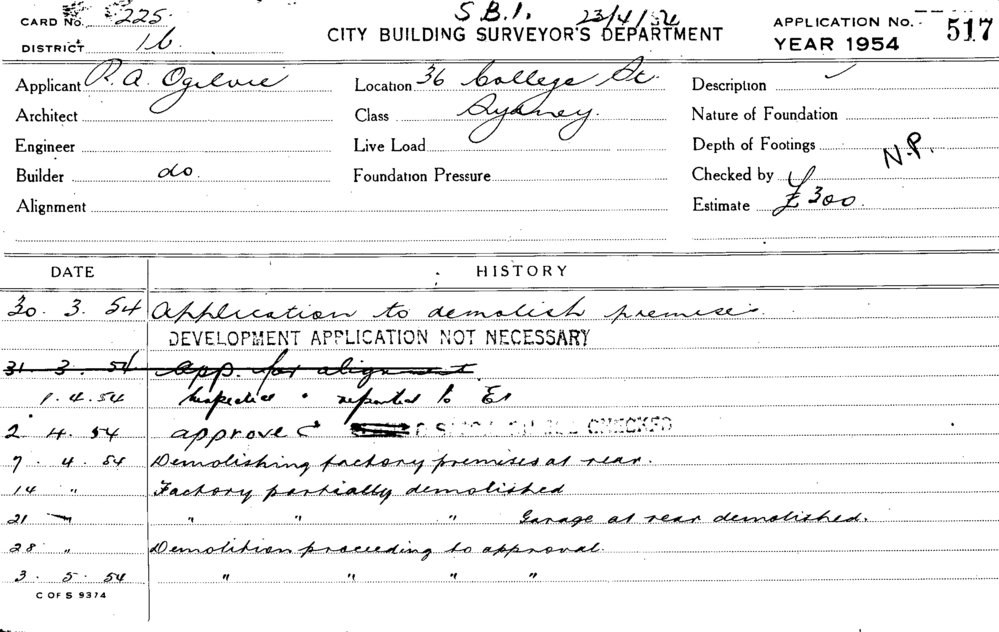 CARD No. 225. S.B.1. 23/4/54 APPLICATION No. 517
DISTRICT 16 CITY BUILDING SURVEYOR'S DEPARTMENT YEAR 1954
Applicant R. A. Ogilvie Location 36 College St. Description
Architect Class Sydney. Nature of Foundation
Engineer Live Load Depth of Footings N.P.
Builder do Foundation Pressure Checked by
Alignment Estimate £300
DATE HISTORY
30. 3. 54 Application to demolish premises.
DEVELOPMENT APPLICATION NOT NECESSARY
31. 3. 54 app. for alignment.
1. 4. 54 Inspected & reported to
2. 4. 54 approved CHECKED
7. 4. 54 Demolishing factory premises at rear.
14 " Factory partially demolished
21 " " " " Garage at rear demolished.
28 " Demolition proceeding to approval.
3. 5. 54 " " " "
C OF S 9374